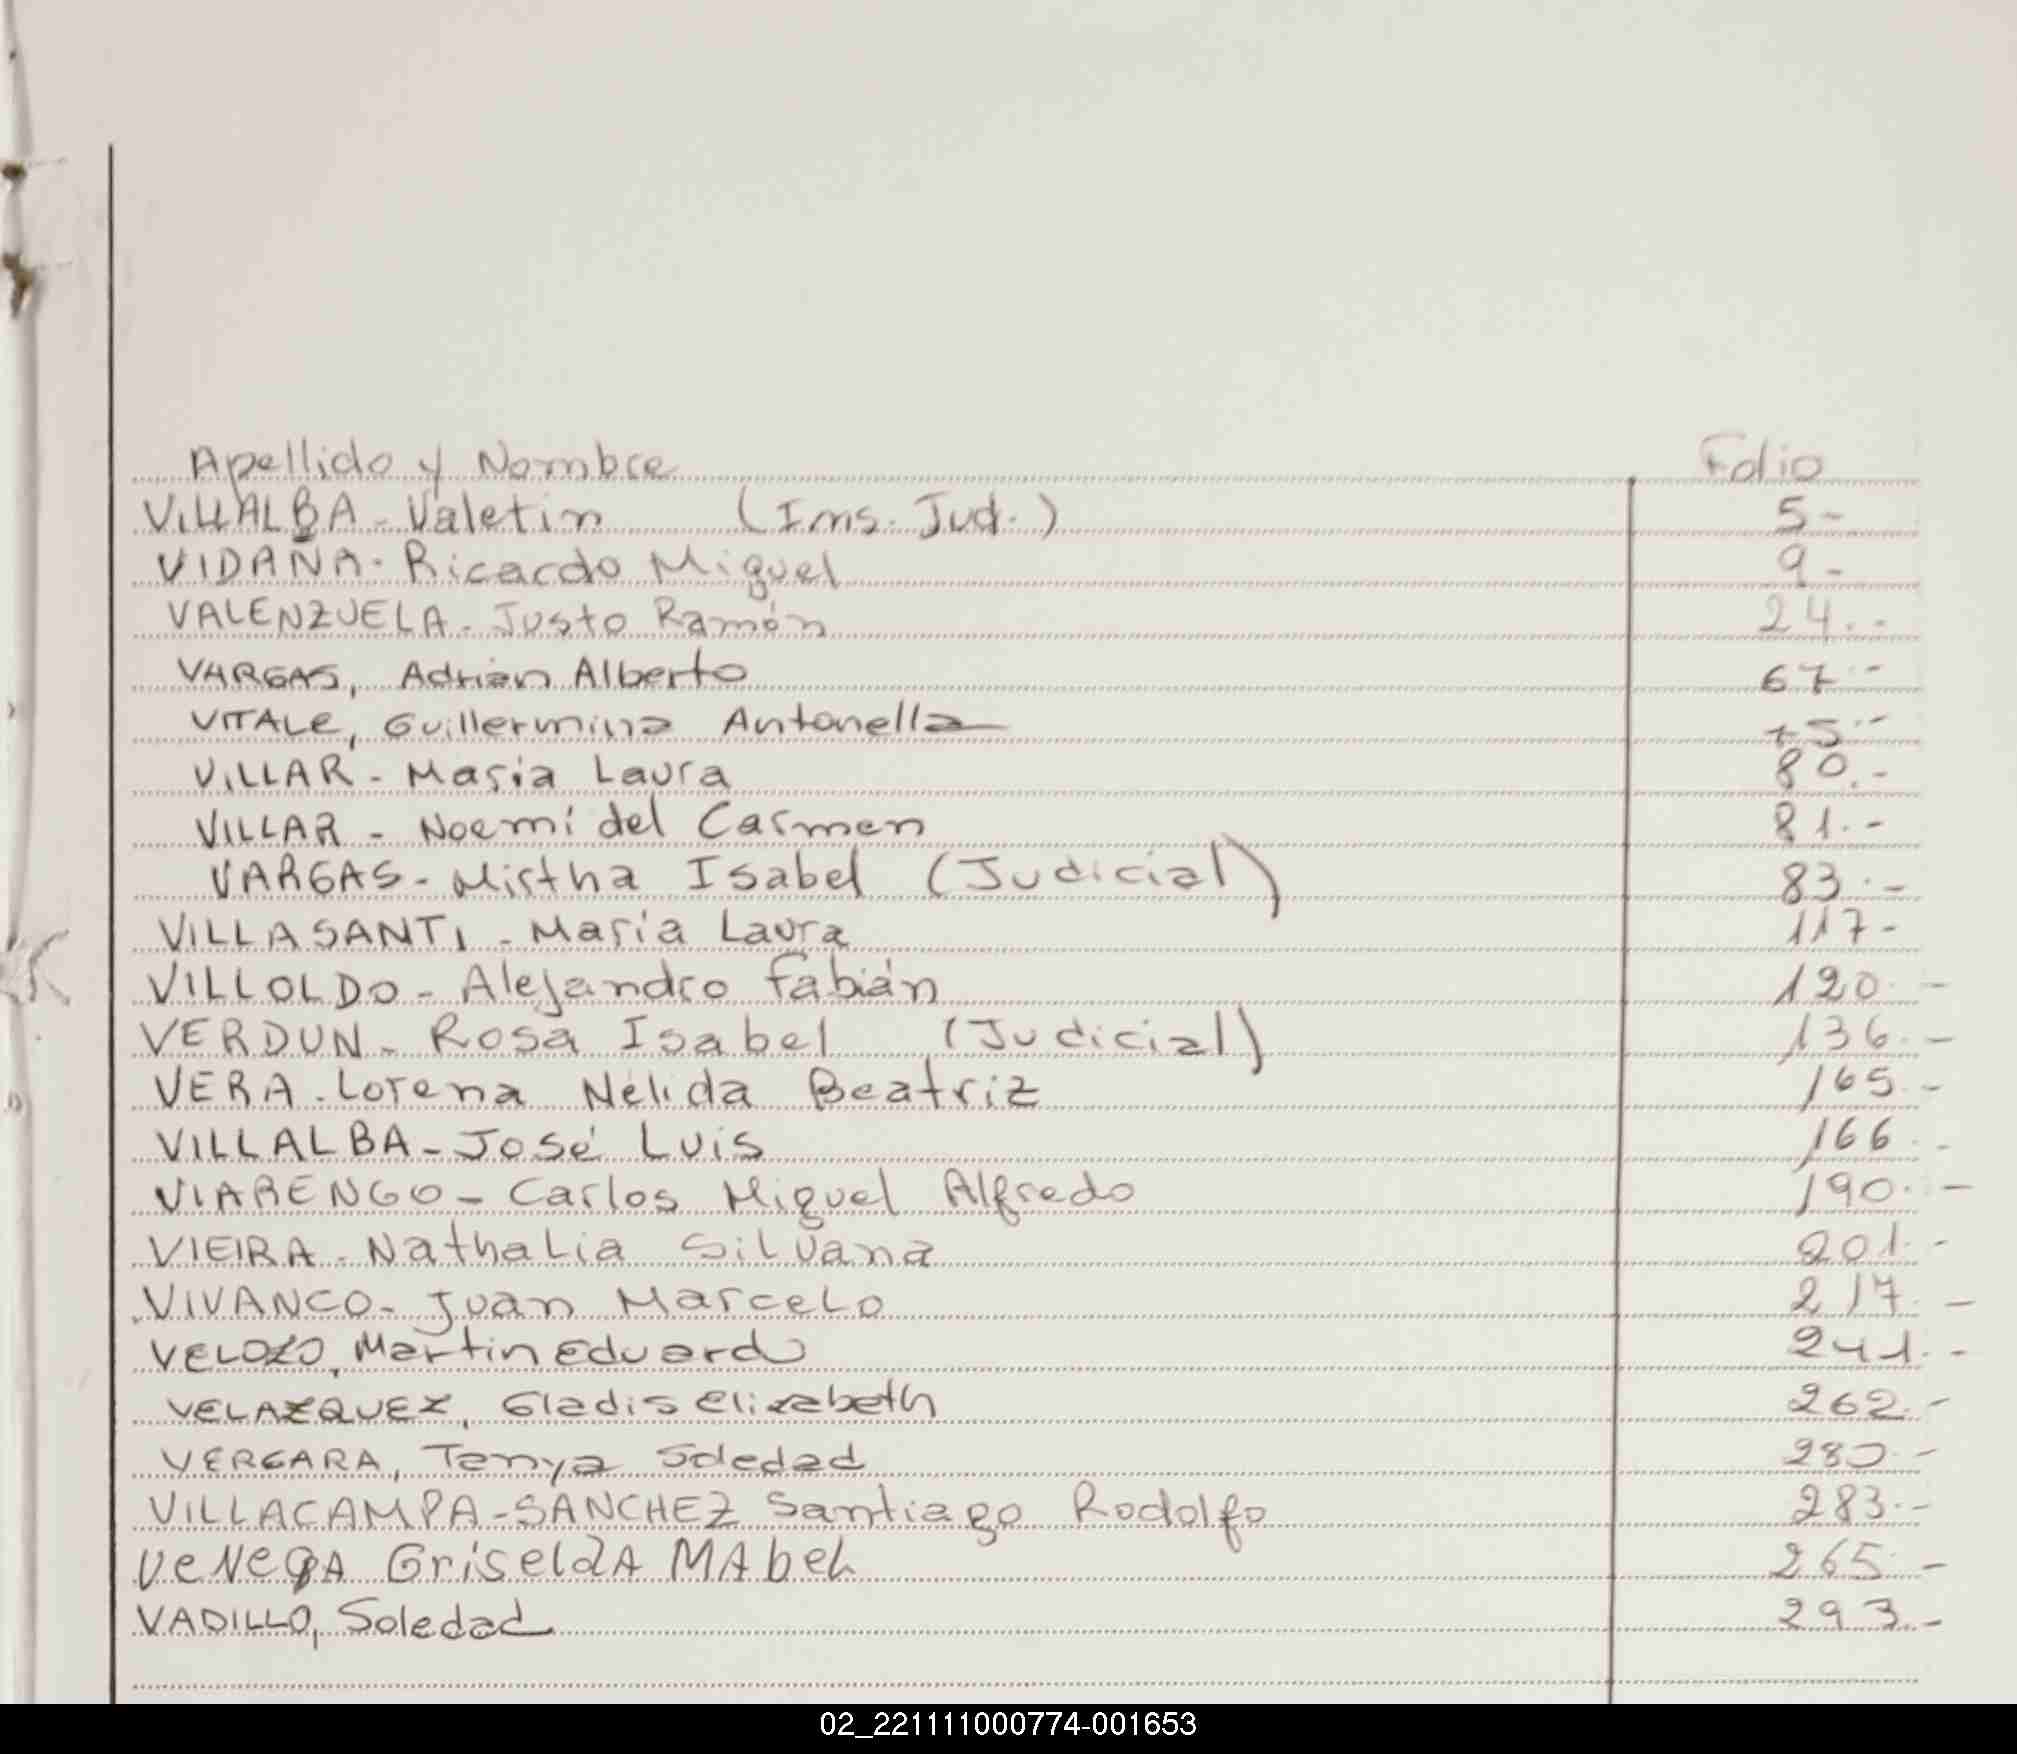 Apellido y Nombre Folio
VILLALBA - Valetin (Ims. Jud.) 5 -
VIDAÑA - Ricardo Miguel 9 -
VALENZUELA - Justo Ramón 24.-
VARGAS, Adrian Alberto 67.-
VITALE, Guillermina Antonella 75.-
VILLAR - Maria Laura 80.-
VILLAR - Noemí del Carmen 81.-
VARGAS - Mirtha Isabel (Judicial) 83.-
VILLASANTI - María Laura 117 -
VILLOLDO - Alejandro Fabián 120.-
VERDUN - Rosa Isabel (Judicial) 136.-
VERA - Lorena Nélida Beatriz 165.-
VILLALBA - José Luis 166.-
VIARENGO - Carlos Miguel Alfredo 190.-
VIEIRA - Nathalia Silvana 201.-
VIVANCO - Juan Marcelo 217.-
VELOZO, Martin Eduardo 241.-
VELAZQUEZ, Gladis Elizabeth 262.-
VERGARA, Tanya Soledad 280.-
VILLACAMPA-SANCHEZ Santiago Rodolfo 283.-
VENEGA Griselda MAbel 265.-
VADILLO, Soledad 293.-
02_221111000774-001653